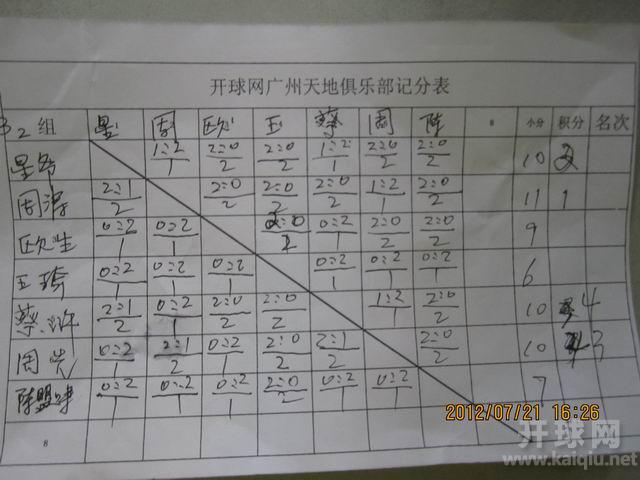 开球网广州天地俱乐部记分表
2 组 星 周 欧 王 蔡 周 陈 8 小分 积分 名次
1:2/1 2:0/2 2:0/2 1:2/1 2:0/2 2:0/2 10 2
周涛 2:1/2 2:0/2 2:0/2 2:0/2 1:2/1 2:0/2 11 1
欧生 0:2/1 0:2/1 2:0/2 0:2/1 2:0/2 2:0/2 9
王琦 0:2/1 0:2/1 0:2/1 0:2/1 0:2/1 0:2/1 6
蔡浒 2:1/2 0:2/1 2:0/2 2:0/2 1:2/1 2:0/2 10 4
周 0:2/1 2:1/2 0:2/1 2:0/2 2:1/2 2:0/2 10 3
陈盟 0:2/1 0:2/1 0:2/1 2:0/2 0:2/1 0:2/1 7
8
2012/07/21 16:26
开球网
www.kaiqiu.net